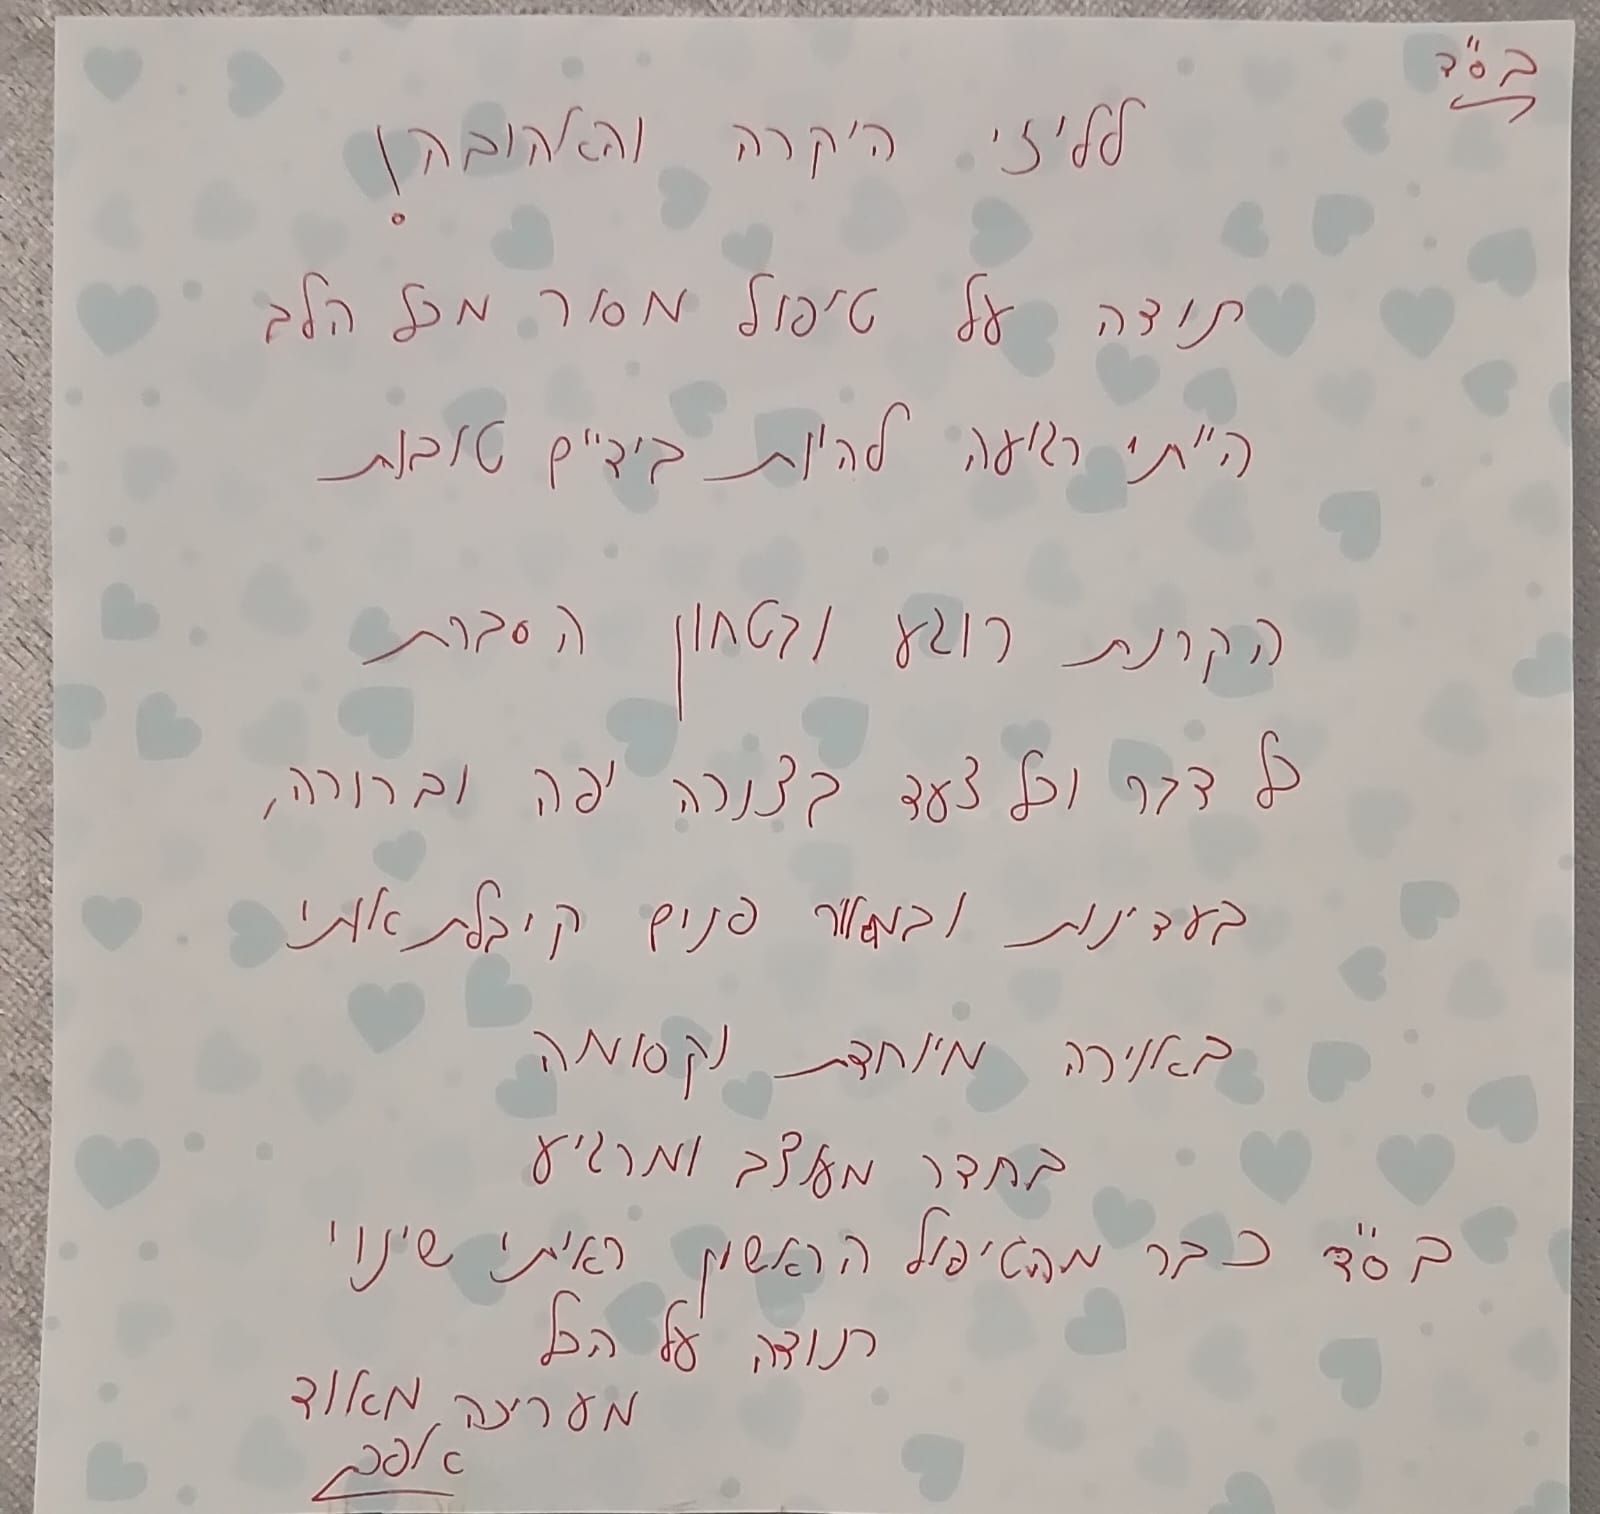 בס"ד
לליזי היקרה והאהובה!
תודה על טיפול מסור מכל הלב
הייתי רגועה להיות בידיים טובות
הקרנת רוגע ובטחון הסברת
כל דבר וכל צעד בצורה יפה וברורה,
בעדינות ובמאור פנים קיבלת אותי
באוירה מיוחדת וקסומה
בחדר מעוצב ומרגיע
בס"ד כבר מהטיפול הראשון ראיתי שינוי
תודה על הכל
מעריכה מאוד